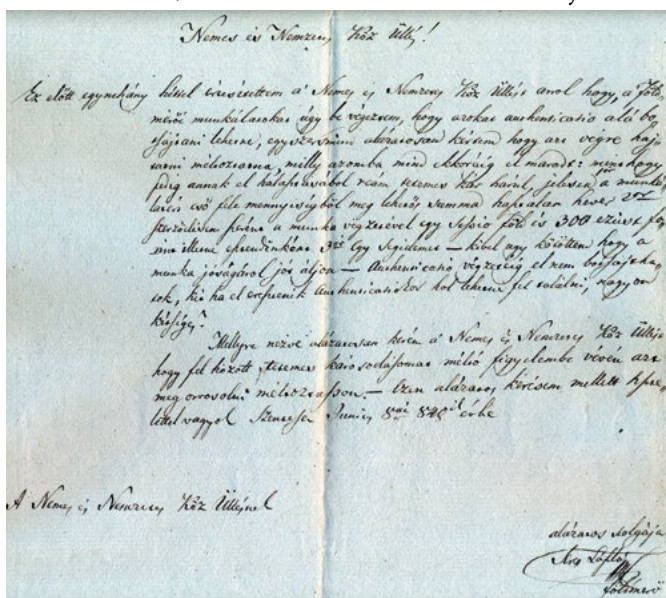 Nemes és Nemzetes Köz Ülés!
Ez előtt egynehány héttel értesítettem a' Nemes és Nemzetes Köz Ülést arrol hogy, a' föld
mérői munkálatokat úgy be végeztem, hogy azokat authenticatio alá bo
tsájtani lehetne, egyszersmind alázatosan kértem hogy azt végre haj
tatni méltóztatna, melly azomba mind ekkoráig el maradt: nemhogy
pedig annak el halasztásából reám tetemes kár hárul, jelesen a munká
ért eső fele mennyiségből meg lehetős summa használatlan hever
szerződésem szerént a munka végzetével egy Sessio föld és 300 ezüst fo
rint illetne 3or Egy Segédemet — kivel ugy kötöttem hogy a
munka joságárol jót álljon — Authenticatio végzetéig el nem botsájtha
tok, kit ha el eresztenék authenticatiokor hol lehetne fel találni, nagyon
kétséges.
Mellyre nézve alázatosan kérem a' Nemes és Nemzetes Köz Ülést
hogy fel hozott tetemes károsodásomat méltó figyelembe vévén azt
meg orvosolni méltóztasson — Ezen alázatos kérésem mellett tiszte
lettel vagyok Szentesen Junius 8án 840ik évbe
A Nemes és Nemzetes Köz Ülésnek
alázatos szolgája
földmérő